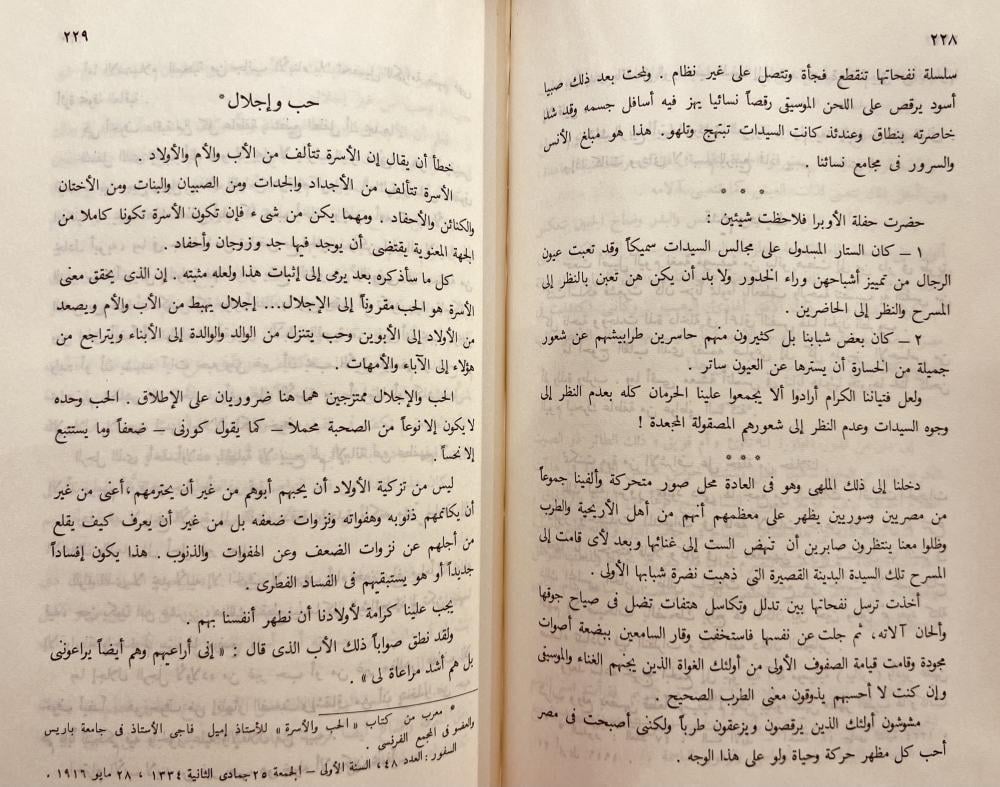 ٢٢٨
سلسلة نفحاتها تنقطع فجأة وتتصل على غير نظام . ولمحت بعد ذلك صبيا
أسود يرقص على اللحن الموسيقى رقصاً نسائيا يهز فيه أسافل جسمه وقد شد
خاصرته بنطاق وعندئذ كانت السيدات تبتهج وتلهو. هذا هو مبلغ الأنس
والسرور فى مجامع نسائنا .
* * *
حضرت حفلة الأوبرا فلاحظت شيئين :
١ – كان الستار المسدول على مجالس السيدات سميكاً وقد تعبت عيون
الرجال من تمييز أشباحهن وراء الخدور ولا بد أن يكن هن تعبن بالنظر إلى
المسرح والنظر إلى الحاضرين .
٢ – كان بعض شبابنا بل كثيرون منهم حاسرين طرابيشهم عن شعور
جميلة من الخسارة أن يسترها عن العيون ساتر .
ولعل فتياننا الكرام أرادوا ألا يجمعوا علينا الحرمان كله بعدم النظر إلى
وجوه السيدات وعدم النظر إلى شعورهم المصقولة المجعدة !
* * *
دخلنا إلى ذلك الملهى وهو فى العادة محل صور متحركة وألفينا جموعاً
من مصريين وسوريين يظهر على معظمهم أنهم من أهل الأريحية والطرب
وظلوا معنا ينتظرون صابرين أن تنهض الست إلى غنائها وبعد لأى قامت إلى
المسرح تلك السيدة البدينة القصيرة التى ذهبت نضرة شبابها الأولى .
أخذت ترسل نفحاتها بين تدلل وتكاسل هتفات تضل فى صياح جوقها
وألحان آلاته، ثم جلت عن نفسها فاستخفت وقار السامعين ببضعة أصوات
مجودة وقامت قيامة الصفوف الأولى من أولئك الغواة الذين يجنهم الغناء والموسيقى
وإن كنت لا أحسبهم يذوقون معنى الطرب الصحيح .
مشوشون أولئك الذين يرقصون ويزعقون طرباً ولكنى أصبحت فى مصر
أحب كل مظهر حركة وحياة ولو على هذا الوجه .
٢٢٩
حب وإجلال*
خطأ أن يقال إن الأسرة تتألف من الأب والأم والأولاد .
الأسرة تتألف من الأجداد والجدات ومن الصبيان والبنات ومن الأختان
والكنائن والأحفاد . ومهما يكن من شىء فإن تكون الأسرة تكونا كاملا من
الجهة المعنوية يقتضى أن يوجد فيها جد وزوجان وأحفاد .
كل ما سأذكره بعد يرمى إلى إثبات هذا ولعله مثبته . إن الذى يحقق معنى
الأسرة هو الحب مقروناً إلى الإجلال... إجلال يهبط من الأب والأم ويصعد
من الأولاد إلى الأبوين وحب يتنزل من الوالد والوالدة إلى الأبناء ويتراجع من
هؤلاء إلى الآباء والأمهات .
الحب والإجلال ممتزجين هما هنا ضروريان على الإطلاق . الحب وحده
لا يكون إلا نوعاً من الصحبة محملا – كما يقول كورنى – ضعفاً وما يستتبع
إلا نحساً .
ليس من تزكية الأولاد أن يحبهم أبوهم من غير أن يحترمهم، أعنى من غير
أن يكاتمهم ذنوبه وهفواته ونزوات ضعفه بل من غير أن يعرف كيف يقلع
من أجلهم عن نزوات الضعف وعن الهفوات والذنوب . هذا يكون إفساداً
جديداً أو هو يستبقيهم فى الفساد الفطرى .
يجب علينا كرامة لأولادنا أن نطهر أنفسنا بهم .
ولقد نطق صواباً ذلك الأب الذى قال : « إنى أراعيهم وهم أيضاً يراعوننى
بل هم أشد مراعاة لى » .
* معرب من كتاب « الحب والأسرة » للأستاذ إميل فاجى الأستاذ فى جامعة باريس
والعضو فى المجمع الفرنسى .
السفور : العدد ٤٨، السنة الأولى – الجمعة ٢٥ جمادى الثانية ١٣٣٤ ، ٢٨ مايو ١٩١٦ .